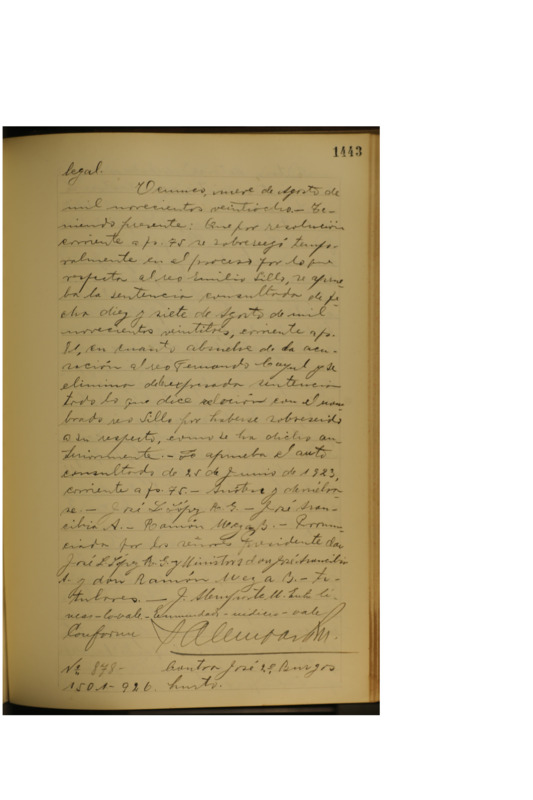 1443
legal.
Temuco, nueve de Agosto de
mil novecientos veintiocho.- Te-
niendo presente: Que por resolución
corriente a fs. 75 se sobreseyó tempo-
ralmente en el proceso por lo que
respecta al reo Emilio Sills, se aprue-
ba la sentencia consultada de fe-
cha diez y siete de Agosto de mil
novecientos veintitres, corriente a fs.
81, en cuanto absuelve de la acu-
sación al reo Fernando y se
elimina sentencia
todo lo que dice relación con el nom-
brado reo Sills por haberse sobreseido
a su respecto, como se ha dicho an-
teriormente.- Se aprueba el auto
consultado de 25 de Junio de 1923,
corriente a fs. 75.- y devuélva-
se.- José L. López R. G.- José Aran-
cibia A.- Ramón Vega B.- Pronun-
ciada por los señores Presidente don
José L. López R. G. y Ministros don José Arancibia
A. y don Ramón Vega B.- Ti-
tulares.- J. M. Entre lí-
neas- -vale- Enmendado- -vale
Conforme
No 878- Contra José 2o Burgos
1501-926. hurto.